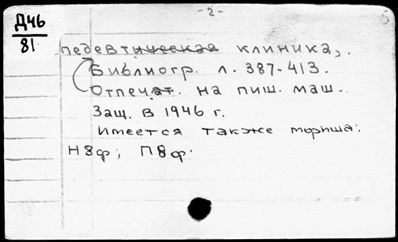 - 2 -
5
Д46
81
педевтическая клиника,.
Библиогр. л. 387-413.
Отпечат. на пиш. маш..
Защ. в 1946 г.
Имеется также
Н8ф; П8ф.